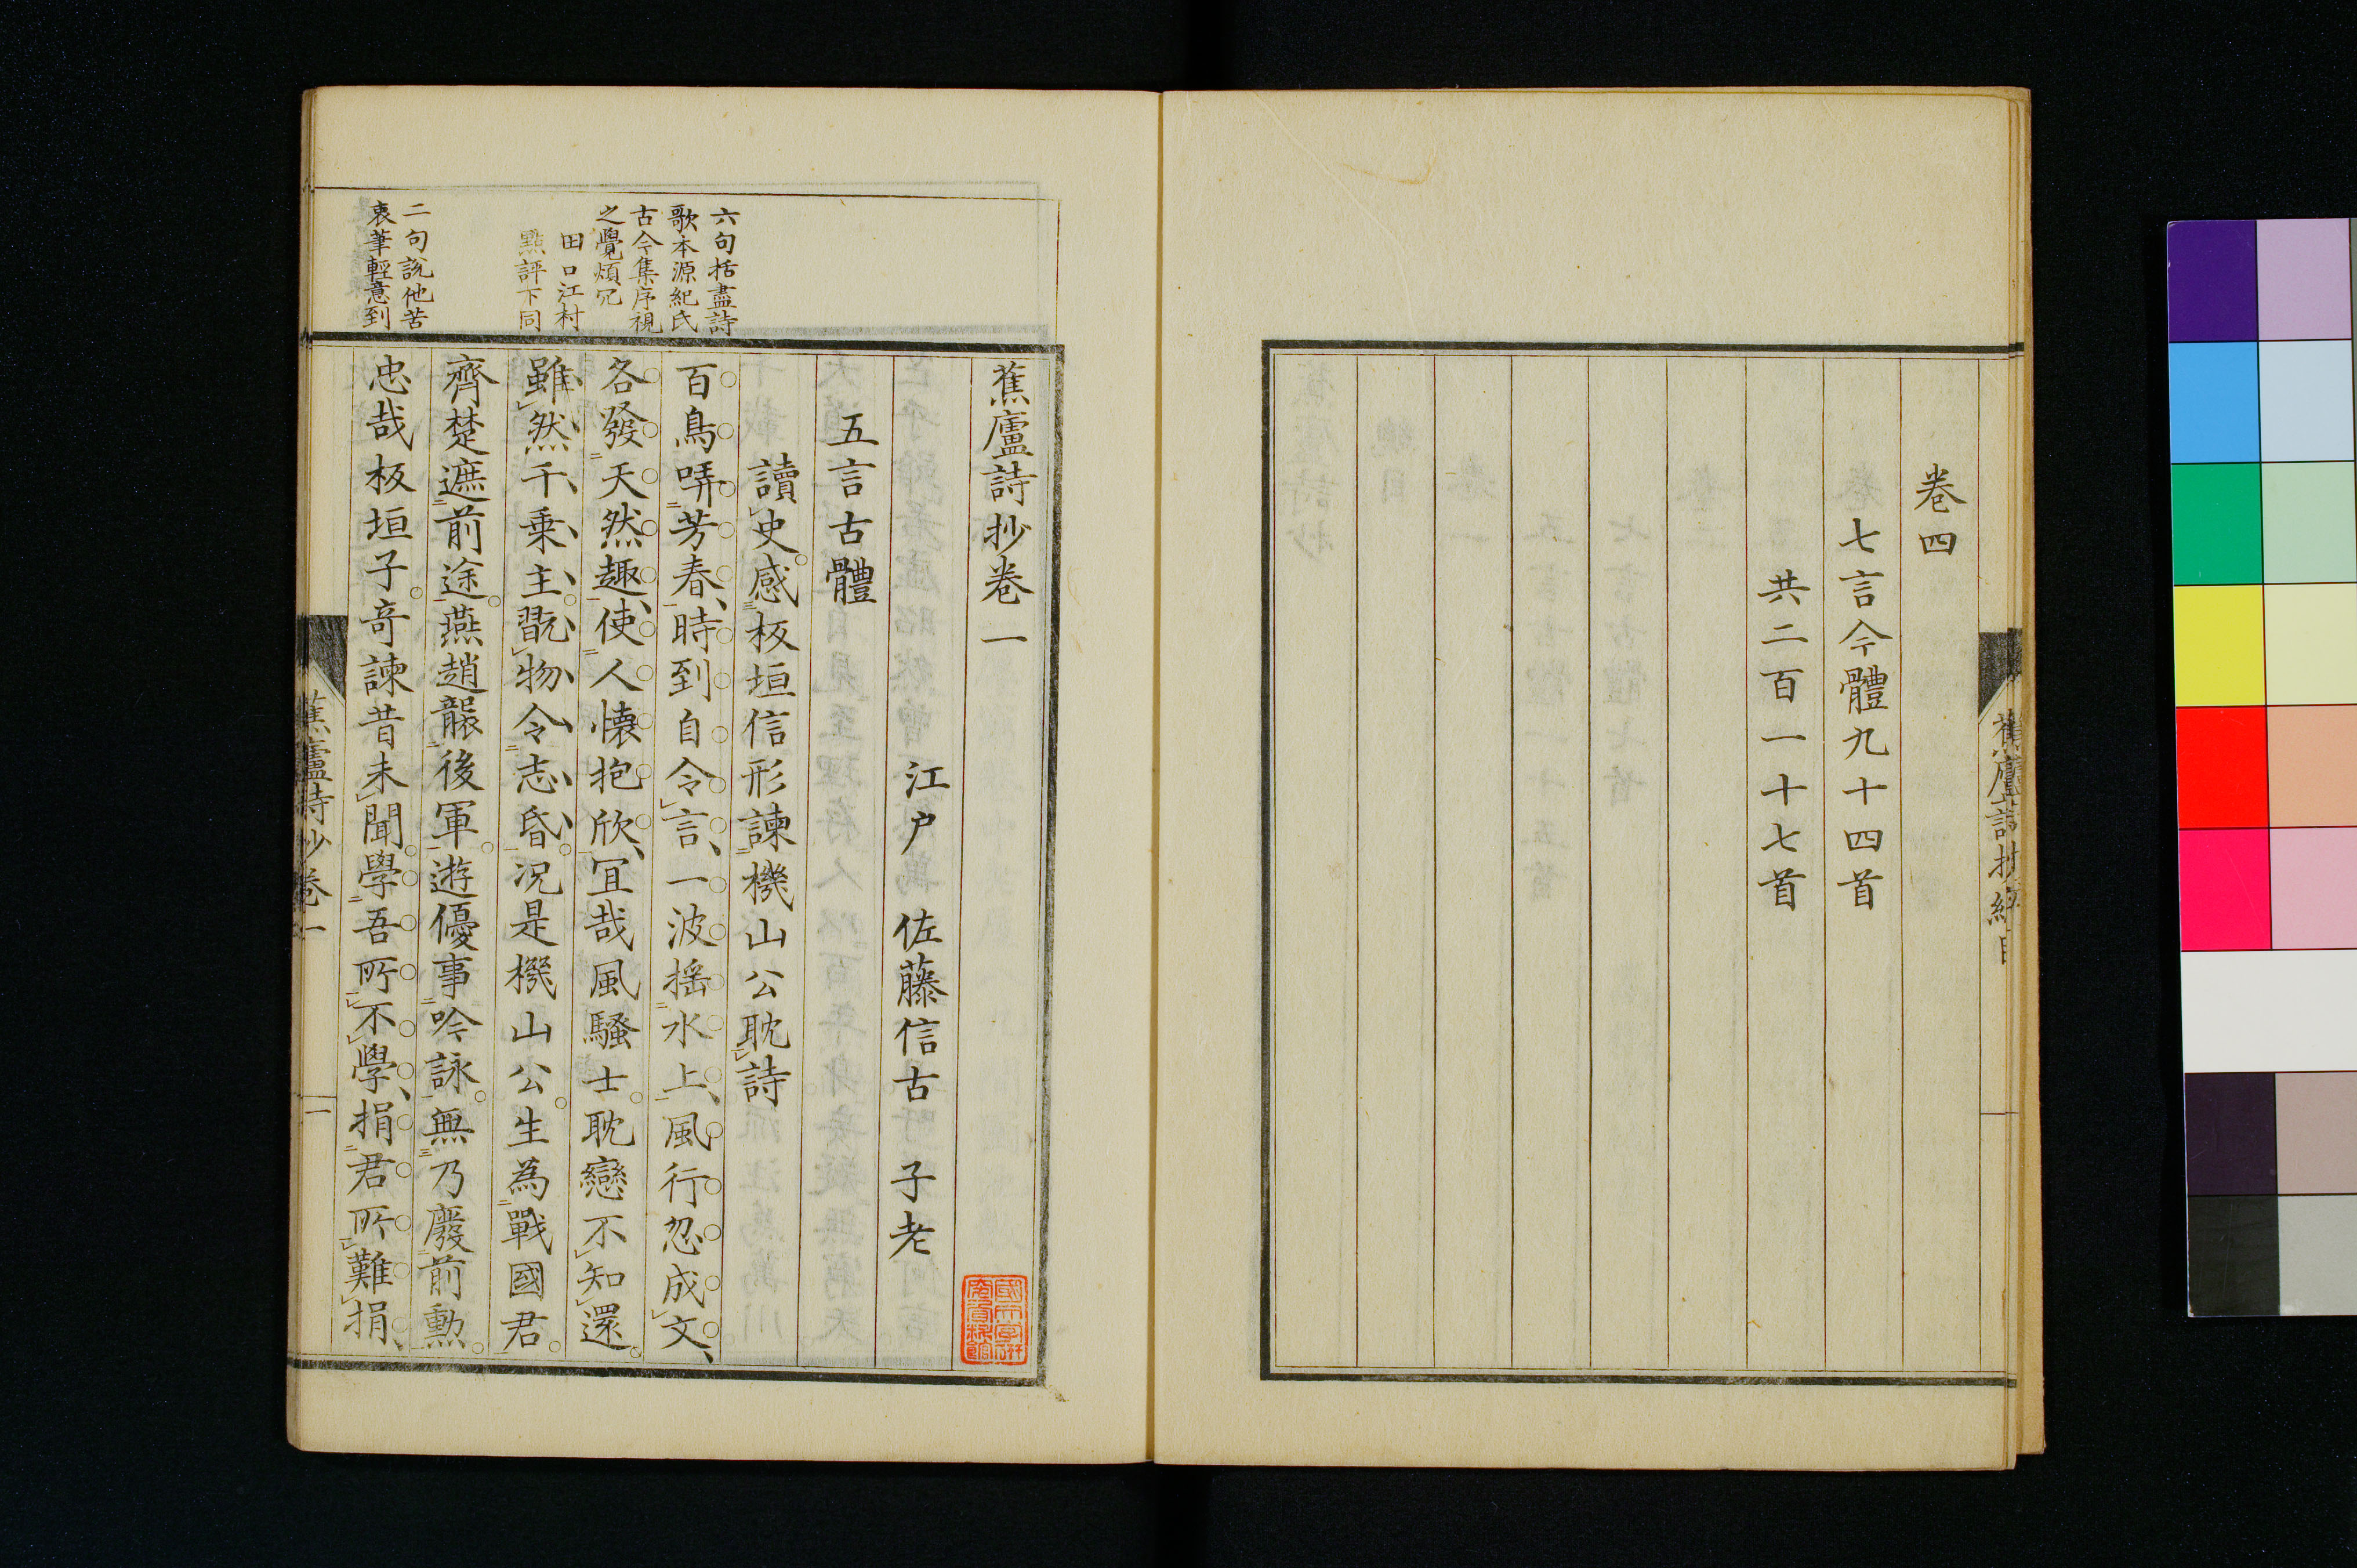 卷四
七言今體九十四首
共二百一十七首
蕉廬詩抄總目
蕉廬詩抄卷一
江戸 佐藤信古 子老
五言古體
讀史感板垣信形諫機山公耽詩
百鳥哢芳春時到自令言一波搖水上風行忽成文
各發天然趣使人懷抱欣宜哉風騷士耽戀不知還
雖然千乗主翫物令志昏況是機山公生為戰國君
齊楚遮前途燕趙襲後軍遊優事吟詠無乃廢前勳
忠哉板垣子奇諫昔未聞學吾所不學捐君所難捐
六句括盡詩
歌本源紀氏
古今集序視
之覺煩冗
田口江村
點評下同
二句說他苦
衷筆輕意到
蕉廬詩抄卷一
一